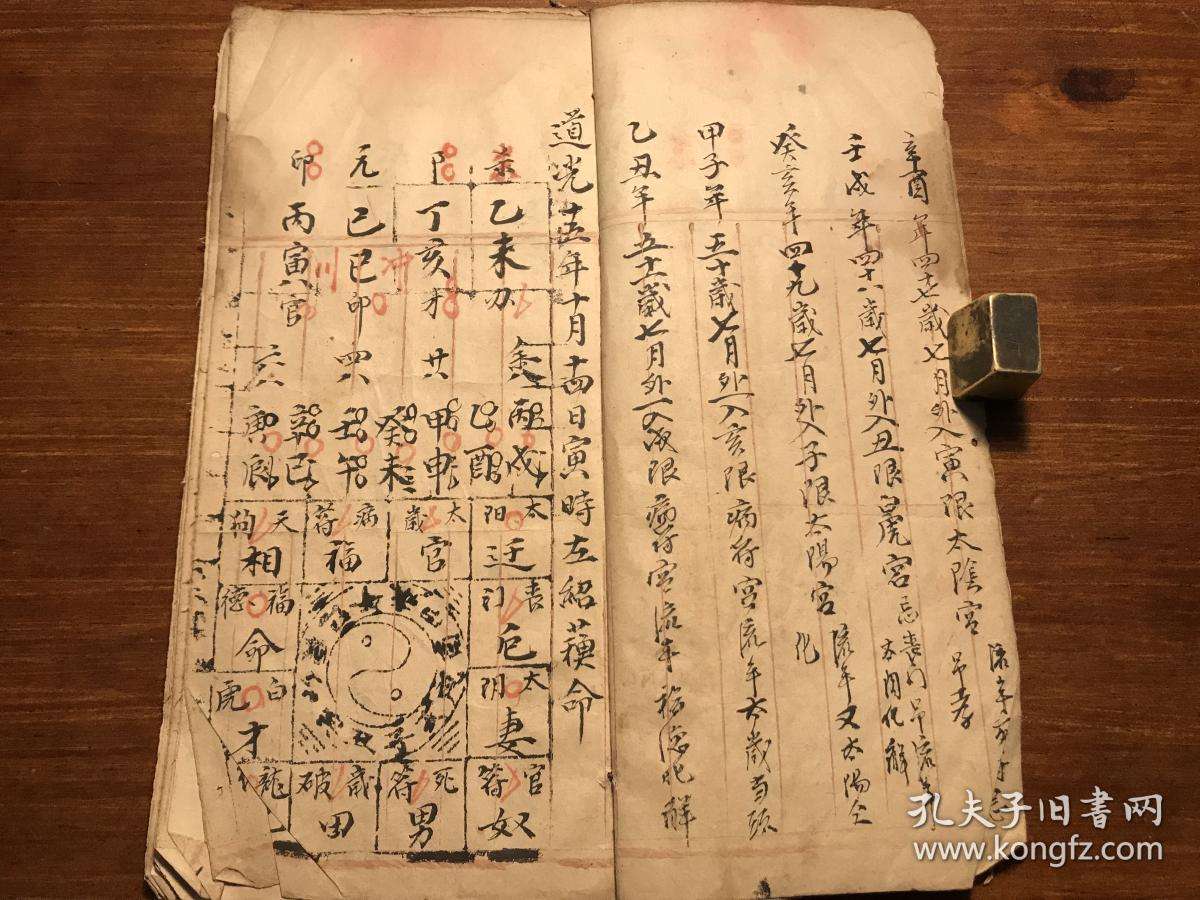 辛酉年四十七歲七月外入寅限太陰宮 吊孝
壬戌年四十八歲七月外入丑限白虎宮
癸亥年四十九歲七月外入子限太陽宮 流年又太陽仝化
甲子年五十歲七月外入亥限病符宮流年太歲当頭
乙丑年五十一歲七月外入戌限病符宮流年福德化解
道光十五年十月十四日寅時左紹蘋命
乙未
丁亥 才
元 己巳 卯
卯 丙寅 官
廿
四八
丙戌
乙酉
甲申
癸未
壬午
辛巳
庚辰
太阳 迁
太歲 官
病符 福
天狗 相
丧门 厄
福德 命
太阴 妻
白虎 才
官符 奴
死符 男
歲破 田
龍
孔夫子旧书网
www.kongfz.com